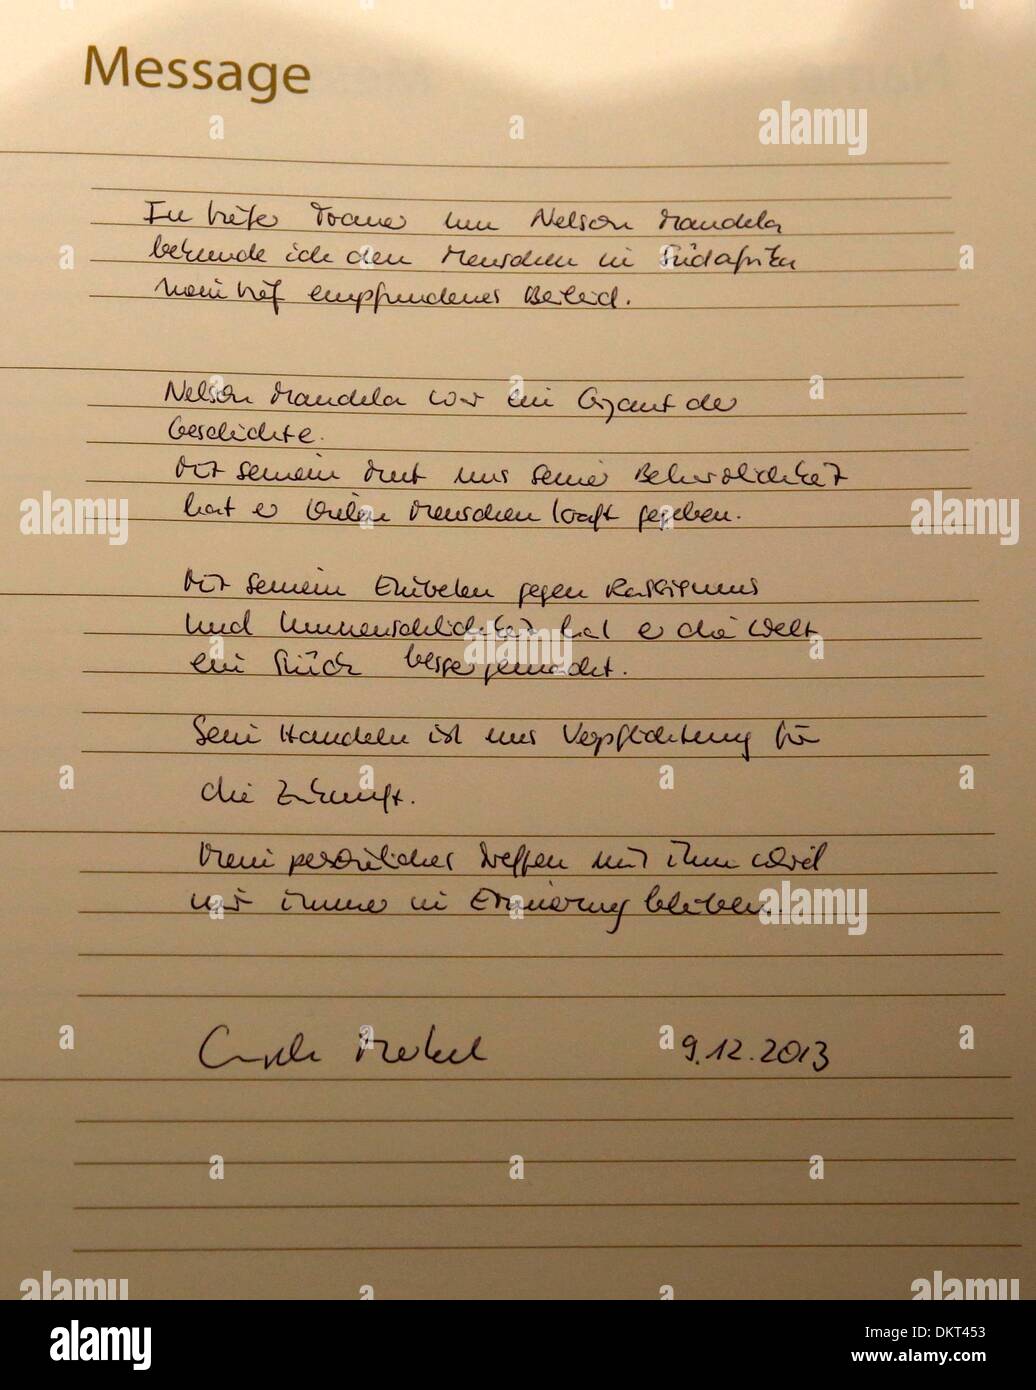 Message
In tiefer Trauer um Nelson Mandela
bekunde ich den Menschen in Südafrika
mein tief empfundenes Beileid.
Nelson Mandela war ein Gigant der
Geschichte.
Mit seinem Mut und seiner Beharrlichkeit
hat er vielen Menschen Kraft gegeben.
Mit seinem Eintreten gegen Rassismus
und Unmenschlichkeit hat er die Welt
ein Stück besser gemacht.
Sein Handeln ist uns Verpflichtung für
die Zukunft.
Mein persönliches Treffen mit ihm wird
mir immer in Erinnerung bleiben.
Angela Merkel 9.12.2013
alamy
Image ID: DKT453
www.alamy.com